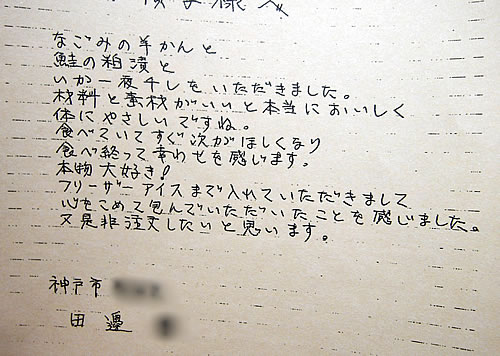 様へ
なごみの羊かんと
鮭の粕漬と
いか一夜干しをいただきました。
材料と素材がいいと本当においしく
体にやさしいですね。
食べていてすぐ次がほしくなり
食べ終って幸わせを感じます。
本物大好き!
フリーザーアイスまで入れていただきまして
心をこめて包んでいただいたことを感じました。
又是非注文したいと思います。
神戸市
田邊